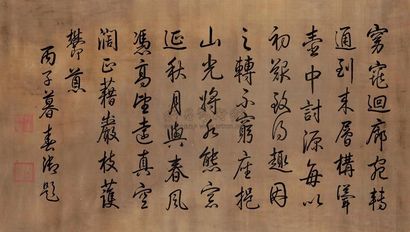 窈窕迴廊宛轉
通到来層構聳
壺中討源每以
初艱致得趣因
之轉不窮座挹
山光將水態窓
延秋月與春風
憑高望遠真空
闊正藉巖枝護
欝葱
丙子暮春御題